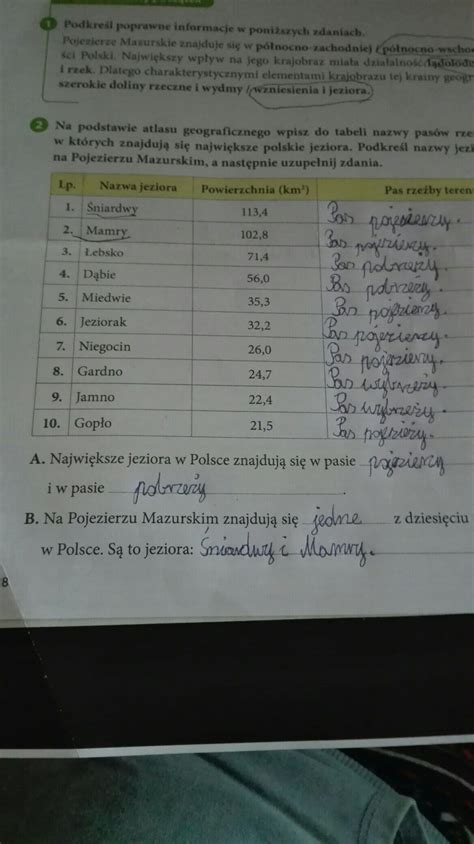 1 Podkreśl poprawne informacje w poniższych zdaniach.
Pojezierze Mazurskie znajduje się w północno-zachodniej / północno-wscho
ści Polski. Największy wpływ na jego krajobraz miała działalność lądolodu
i rzek. Dlatego charakterystycznymi elementami krajobrazu tej krainy geogr
szerokie doliny rzeczne i wydmy / wzniesienia i jeziora.
2 Na podstawie atlasu geograficznego wpisz do tabeli nazwy pasów rze
w których znajdują się największe polskie jeziora. Podkreśl nazwy jezi
na Pojezierzu Mazurskim, a następnie uzupełnij zdania.
Lp. Nazwa jeziora Powierzchnia (km²) Pas rzeźby teren
1. Śniardwy 113,4 Pas pojezierzy.
2. Mamry 102,8 Pas pojezierzy.
3. Łebsko 71,4 Pas pobrzeży.
4. Dąbie 56,0 Pas pobrzeży.
5. Miedwie 35,3 Pas pojezierzy.
6. Jeziorak 32,2 Pas pojezierzy.
7. Niegocin 26,0 Pas pojezierzy.
8. Gardno 24,7 Pas wybrzeży.
9. Jamno 22,4 Pas wybrzeży.
10. Gopło 21,5 Pas pojezierzy.
A. Największe jeziora w Polsce znajdują się w pasie pojezierzy
i w pasie pobrzeży .
B. Na Pojezierzu Mazurskim znajdują się jedne z dziesięciu
w Polsce. Są to jeziora: Śniardwy i Mamry.
8